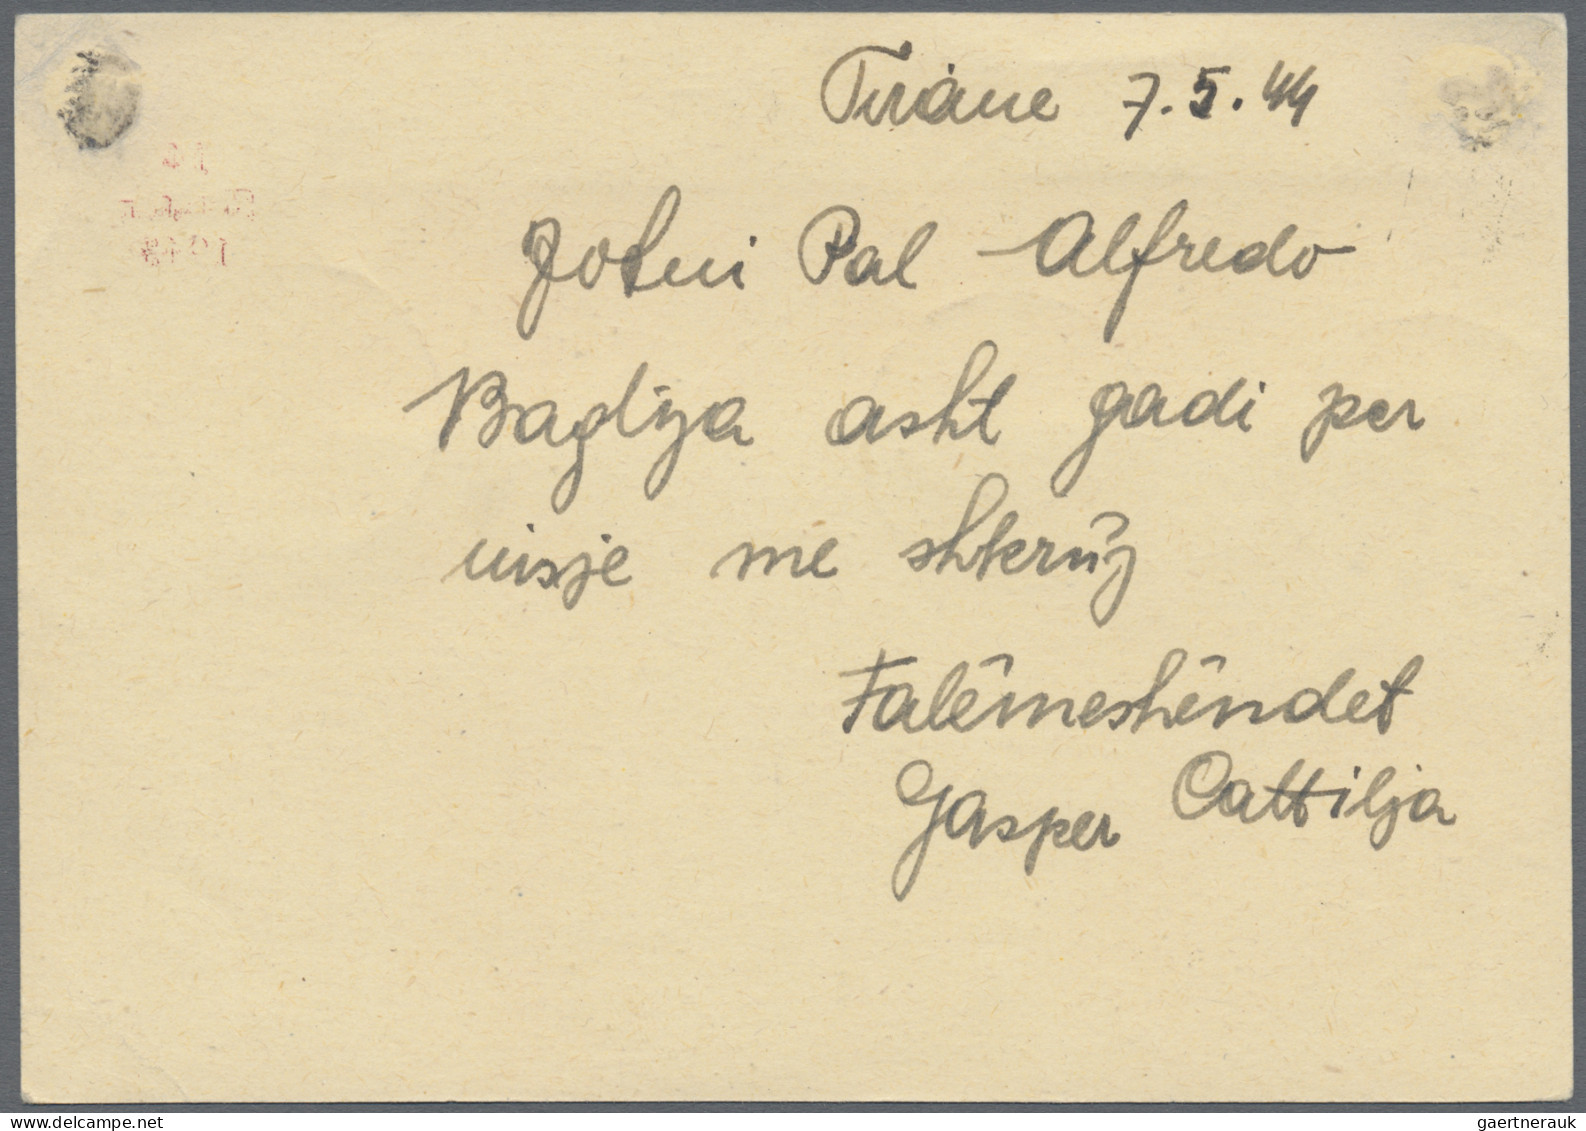 Tiráne 7.5.44
Zotni Pal Alfredo
Bagliza asht gadi per
nisje me shkrúz
Falêmeshêndet
Gasper Cattilja
14
1943
gaertnerauk